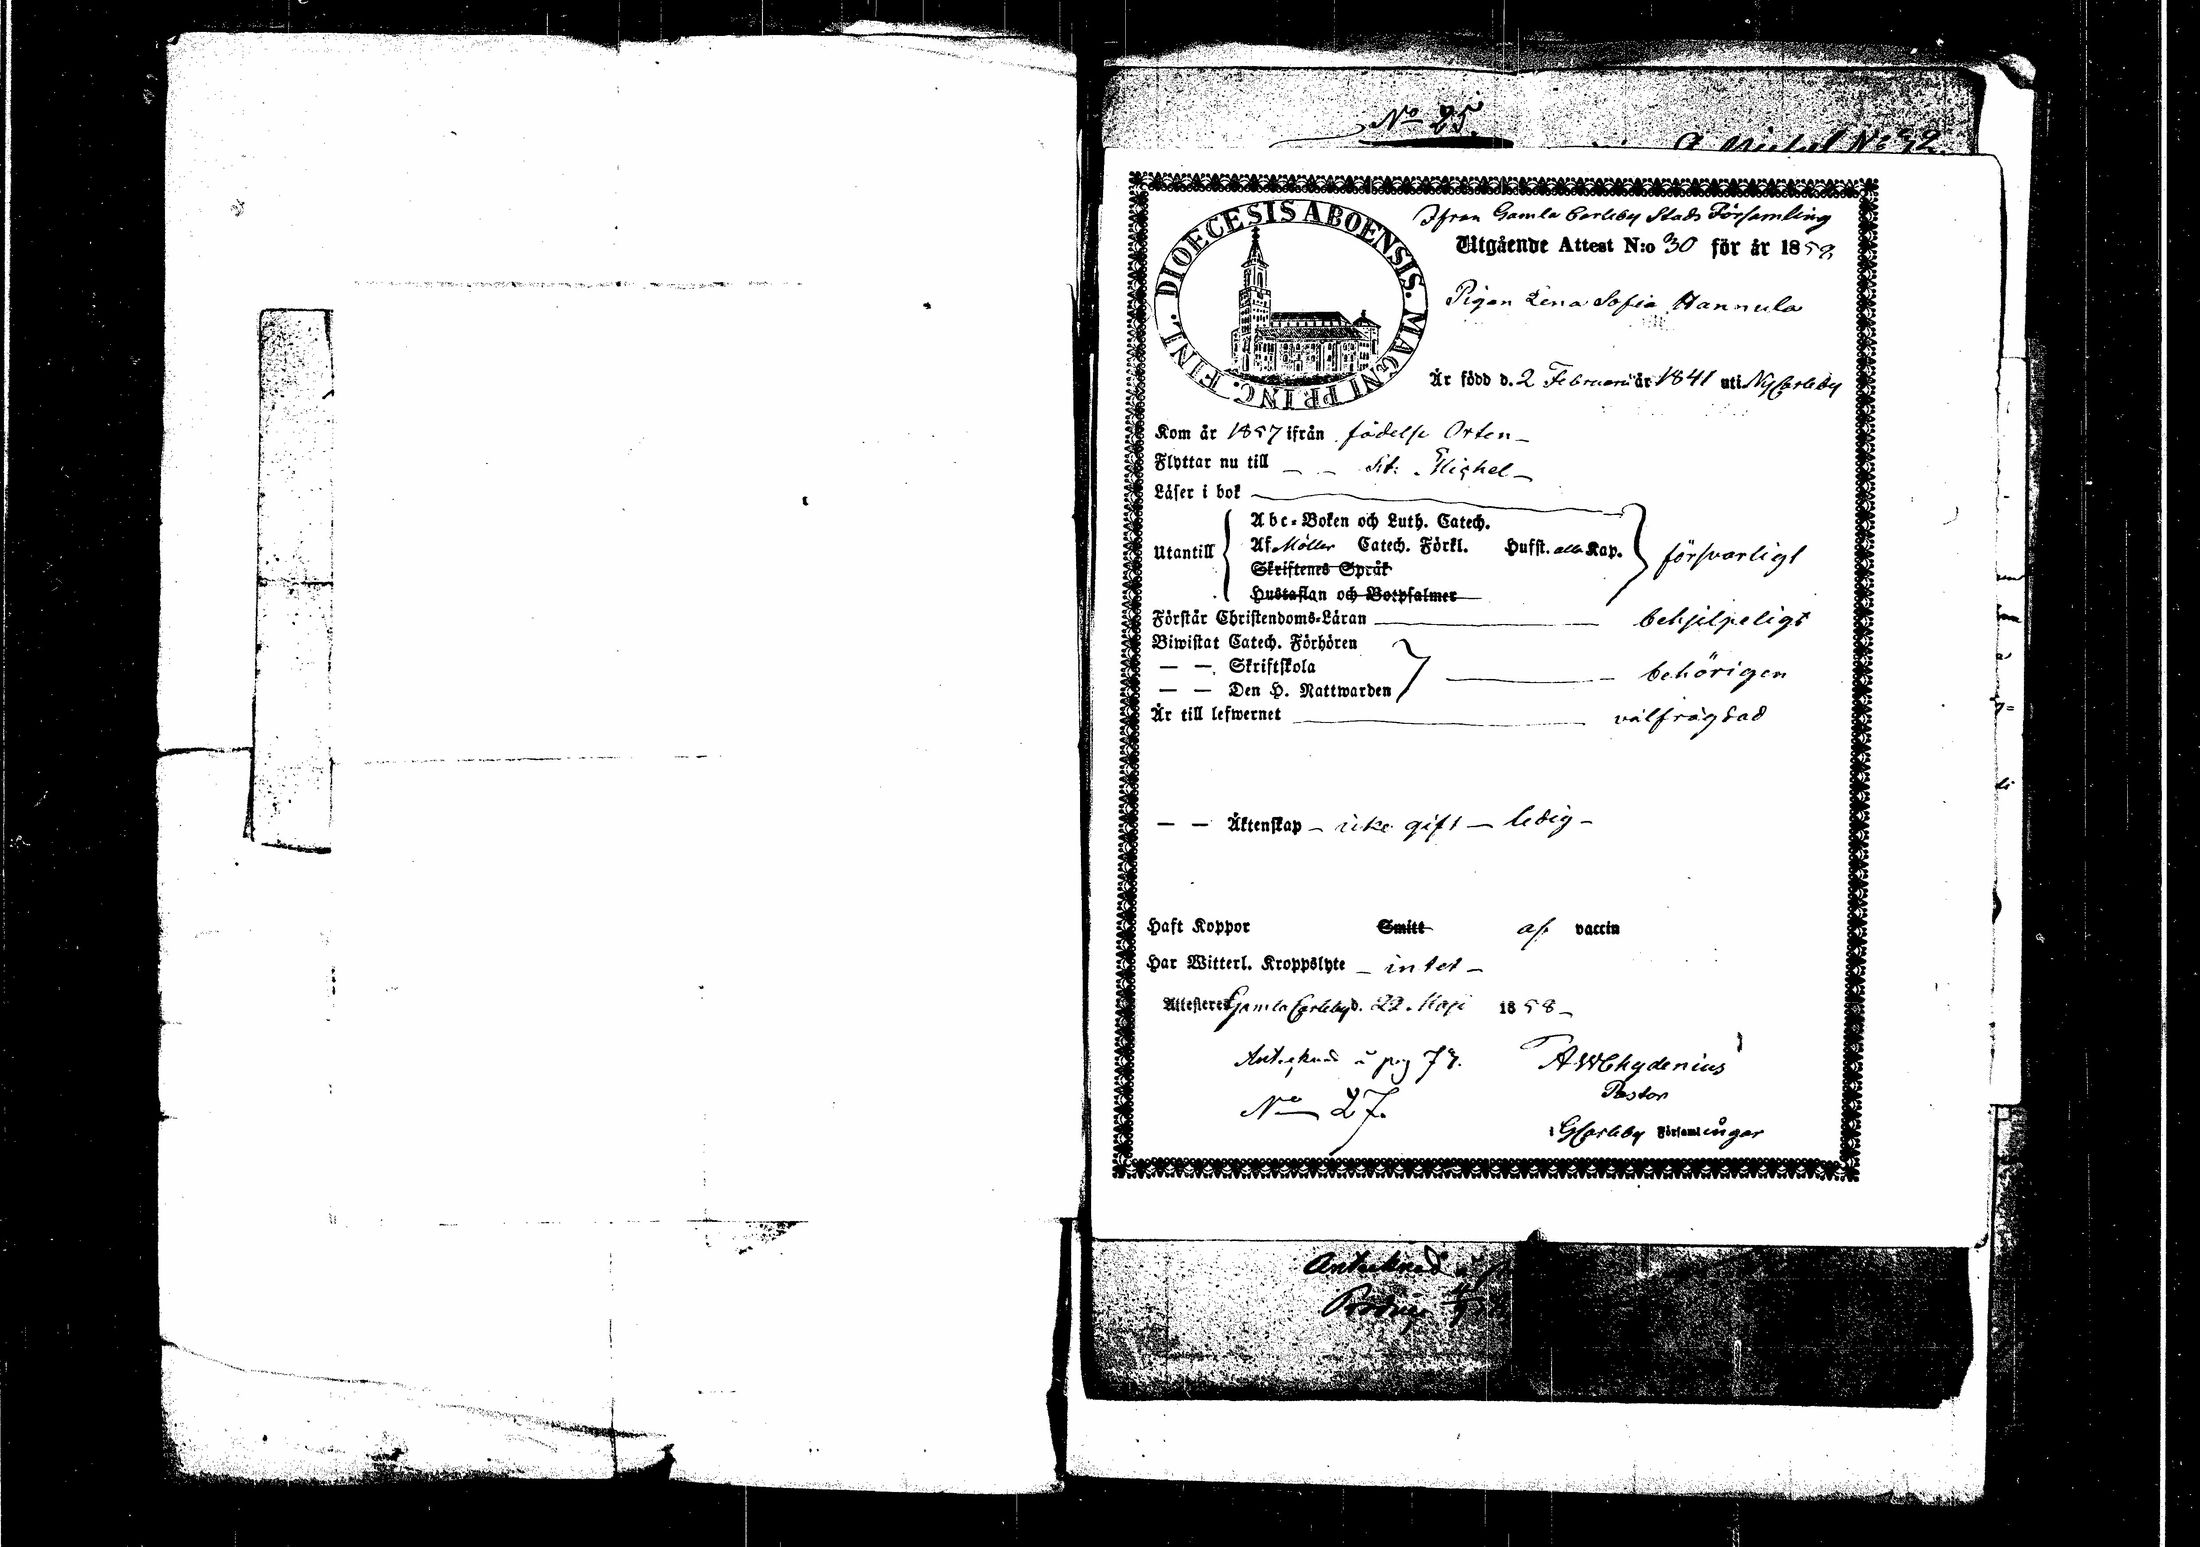 No 25.
DIOECESIS ABOENSIS. MAGNI PRINC. FINL.
Ifran Gamla Carleby Stads Församling
Utgående Attest N:o 30 för år 1858
Pigan Lena Sofia Hannula
Är född d. 2 Februari år 1841 uti NyCarleby
Kom år 1857 ifrån födelse Orten –
Flyttar nu till – – S:t Michel –
Läser i bok
Abc-Boken och Luth. Catech.
Utantill Af Möller Catech. Förkl. Hufst. alla Kap. försvarligt
Skriftenes Språk
Hustaflan och Botpsalmer
Förstår Christendoms-Läran behjelpeligt
Biwistat Catech. Förhören
— — Skriftskola behörigen
— — Den H. Nattwarden
Är till lefwernet välfrägdad
— — Äktenskap – icke gift – ledig –
Haft Koppor Smitt af vaccin
Har Witterl. Kroppslyte – intet –
Attesteres Gamla Carleby d. 22 Maji 1858 –
Antecknad å pag 78. AWChydenius
No 27. Pastor
i GCarleby Församlingar
Antecknad å